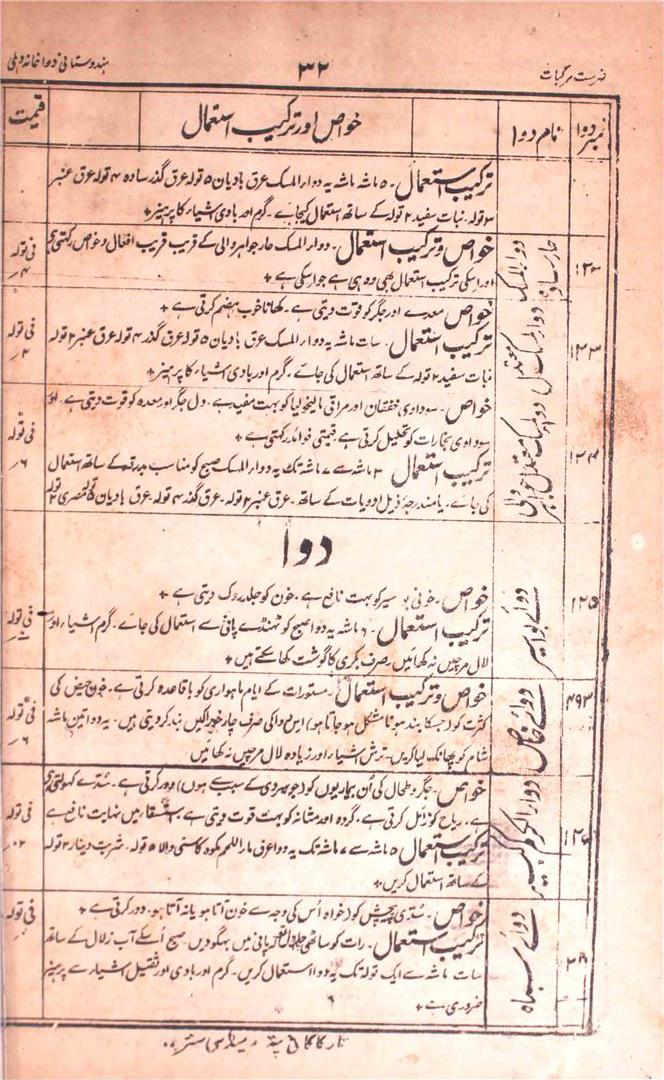 فہرست مرکبات
۳۲
ہندوستانی دواخانہ دہلی
نمبر دوا
نام دوا
خواص اور ترکیب استعمال
قیمت
ترکیب استعمال۔ ۵ ماشہ یہ دوار المسک عرق بادیان ۵ تولہ عرق گذر سادہ ۴ تولہ عرق عنبر
۳ تولہ۔ نبات سفید ۲ تولہ کے ساتھ استعمال کیجائے۔ گرم اور بادی اشیاء کا پرہیز +
دوار المسک حار سادہ
خواص و ترکیب استعمال۔ دوار المسک حار جواہر والی کے قریب قریب افعال و خواص رکھتی ہے
اور اسکی ترکیب استعمال بھی وہی ہے جو اسکی ہے +
فی تولہ
۱۲۳
دوار المسک معتدل
خواص معدے اور جگر کو قوت دیتی ہے۔ کھانا خوب ہضم کرتی ہے +
ترکیب استعمال۔ سات ماشہ یہ دوار المسک عرق بادیان ۵ تولہ عرق گذر ۴ تولہ عرق عنبر ۲ تولہ
نبات سفید ۲ تولہ کے ساتھ استعمال کی جائے۔ گرم اور بادی اشیاء کا پرہیز +
فی تولہ
۱۲۴
دوار المسک معتدل جواہر والی
خواص۔ سوداوی خفقان اور مراقی مالیخولیا کو بہت مفید ہے۔ دل جگر اور معدہ کو قوت دیتی ہے۔ اور
سوداوی بخارات کو تحلیل کرتی ہے قیمتی فوائد رکھتی ہے +
ترکیب استعمال ۳ ماشہ سے ۷ ماشہ تک یہ دوار المسک صبح کو مناسب بدرقہ کے ساتھ استعمال
کی جائے۔ یا مندرجہ ذیل ادویات کے ساتھ۔ عرق عنبر ۲ تولہ۔ عرق گذر ۴ تولہ۔ عرق بادیان
فی تولہ
۶
دوا
۱۲۵
دوائے بواسیر
خواص۔ خونی بواسیر کو بہت نافع ہے۔ خون کو جلد روک دیتی ہے +
ترکیب استعمال۔ ۶ ماشہ یہ دوا صبح کو ٹھنڈے پانی سے استعمال کی جائے۔ گرم اشیاء اور
لال مرچیں نہ کھائیں۔ صرف بکری کا گوشت کھا سکتے ہیں +
فی تولہ
۴۹۳
دوائے خاص
خواص و ترکیب استعمال۔ مستورات کے ایام ماہواری کو باقاعدہ کرتی ہے۔ خون حیض کی
کثرت کو (جسکا بند ہونا مشکل ہو جاتا ہو) اس دوا کی صرف چار خوراکیں بند کر دیتی ہیں۔ یہ دوا تین ماشہ
شام کو پھانک لیا کریں۔ ترش اشیاء اور زیادہ لال مرچیں نہ کھائیں
فی تولہ
۶
دوار الکرکم کبیر
خواص۔ جگر و طحال کی اُن بیماریوں کو (جو سردی کے سبب سے ہوں) دور کرتی ہے۔ سُدّے کھولتی
ہے۔ ریاح کو زائل کرتی ہے۔ گردہ اور مثانہ کو بہت قوت دیتی ہے استسقاء میں نہایت نافع ہے
ترکیب استعمال ۵ ماشہ سے ۷ ماشہ تک یہ دوا عرق مار اللحم مکوہ کاسنی والا ۵ تولہ۔ شربت دینار ۲ تولہ
کے ساتھ استعمال کریں +
فی تولہ
دوائے
خواص۔ سُدّی پیچش کو (خواہ اُس کی وجہ سے خون آتا ہو یا نہ آتا ہو۔ دور کرتی ہے +
ترکیب استعمال۔ رات کو ساٹھی چاول پانی میں بھگو دیں۔ صبح اُسکے آب زلال کے ساتھ
سات ماشہ سے ایک تولہ تک یہ دوا استعمال کریں۔ گرم اور بادی اور ثقیل اشیاء سے پرہیز
ضروری ہے +
فی تولہ
تار کا کافی پتہ